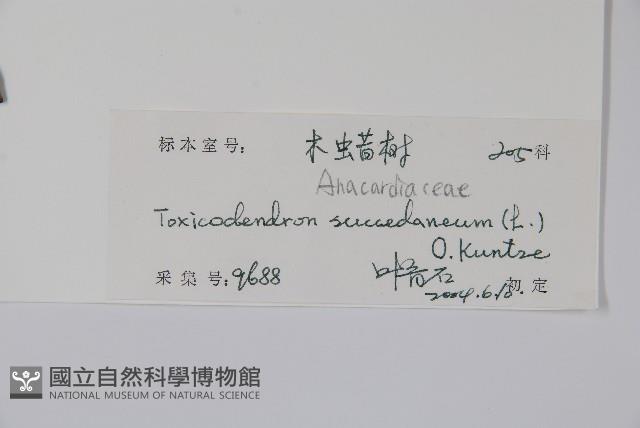 标本室号: 木蜡树 205科
Anacardiaceae
Toxicodendron succedaneum (L.)
O.Kuntze
采集号: 9688 叶育石
2004.6.10. 初定
國立自然科學博物館
NATIONAL MUSEUM OF NATURAL SCIENCE